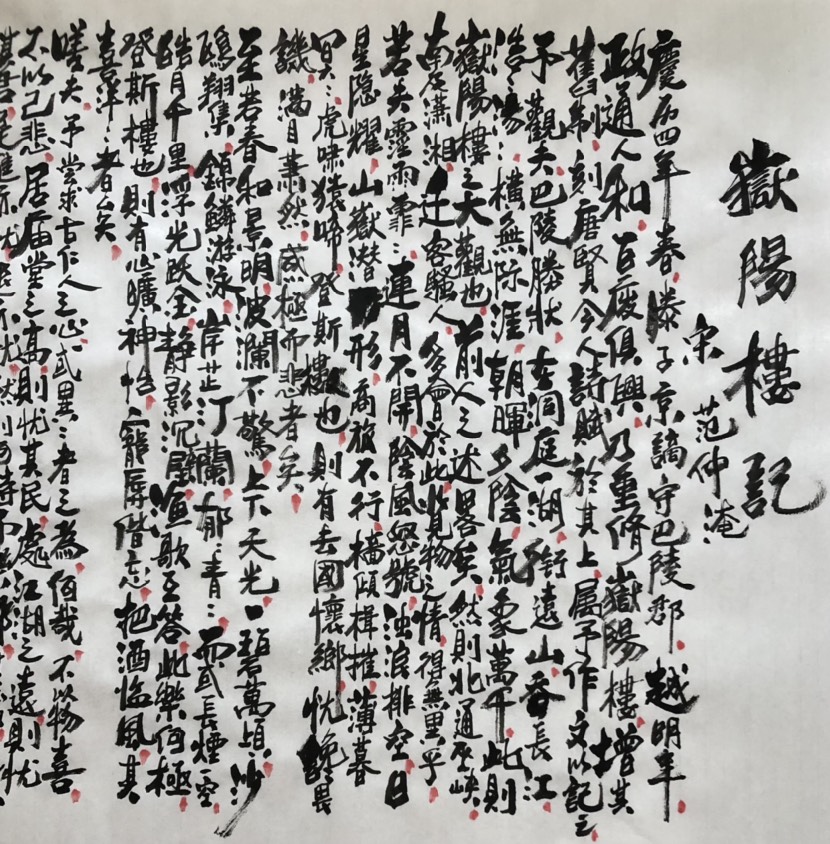 嶽陽樓記
宋 范仲淹
慶历四年春滕子京謫守巴陵郡越明年
政通人和百废俱興乃重修嶽陽樓增其
舊制刻唐賢今人詩賦於其上属予作文以記之
予觀夫巴陵勝狀在洞庭一湖銜遠山吞長江
浩〻湯〻橫無际涯朝暉夕陰氣象萬千此則
嶽陽樓之大觀也前人之述畧矣然則北通巫峡
南极瀟湘迁客騷人多會於此览物之情得無異乎
若夫霪雨霏〻連月不開陰風怒號浊浪排空日
星隐耀山嶽潜形商旅不行檣傾楫摧薄暮
冥〻虎啸猿啼登斯樓也則有去國懷鄉忧讒畏
譏滿目萧然感極而悲者矣
至若春和景明波瀾不驚上下天光一碧萬頃沙
鷗翔集錦鱗游泳岸芷汀蘭郁〻青〻而或長煙一空
皓月千里浮光跃金静影沉璧渔歌互答此樂何極
登斯樓也則有心曠神怡寵辱偕忘把酒临風其
喜洋〻者矣
嗟夫予嘗求古仁人之心或異二者之為何哉不以物喜
不以己悲居庙堂之高則忧其民處江湖之遠則忧